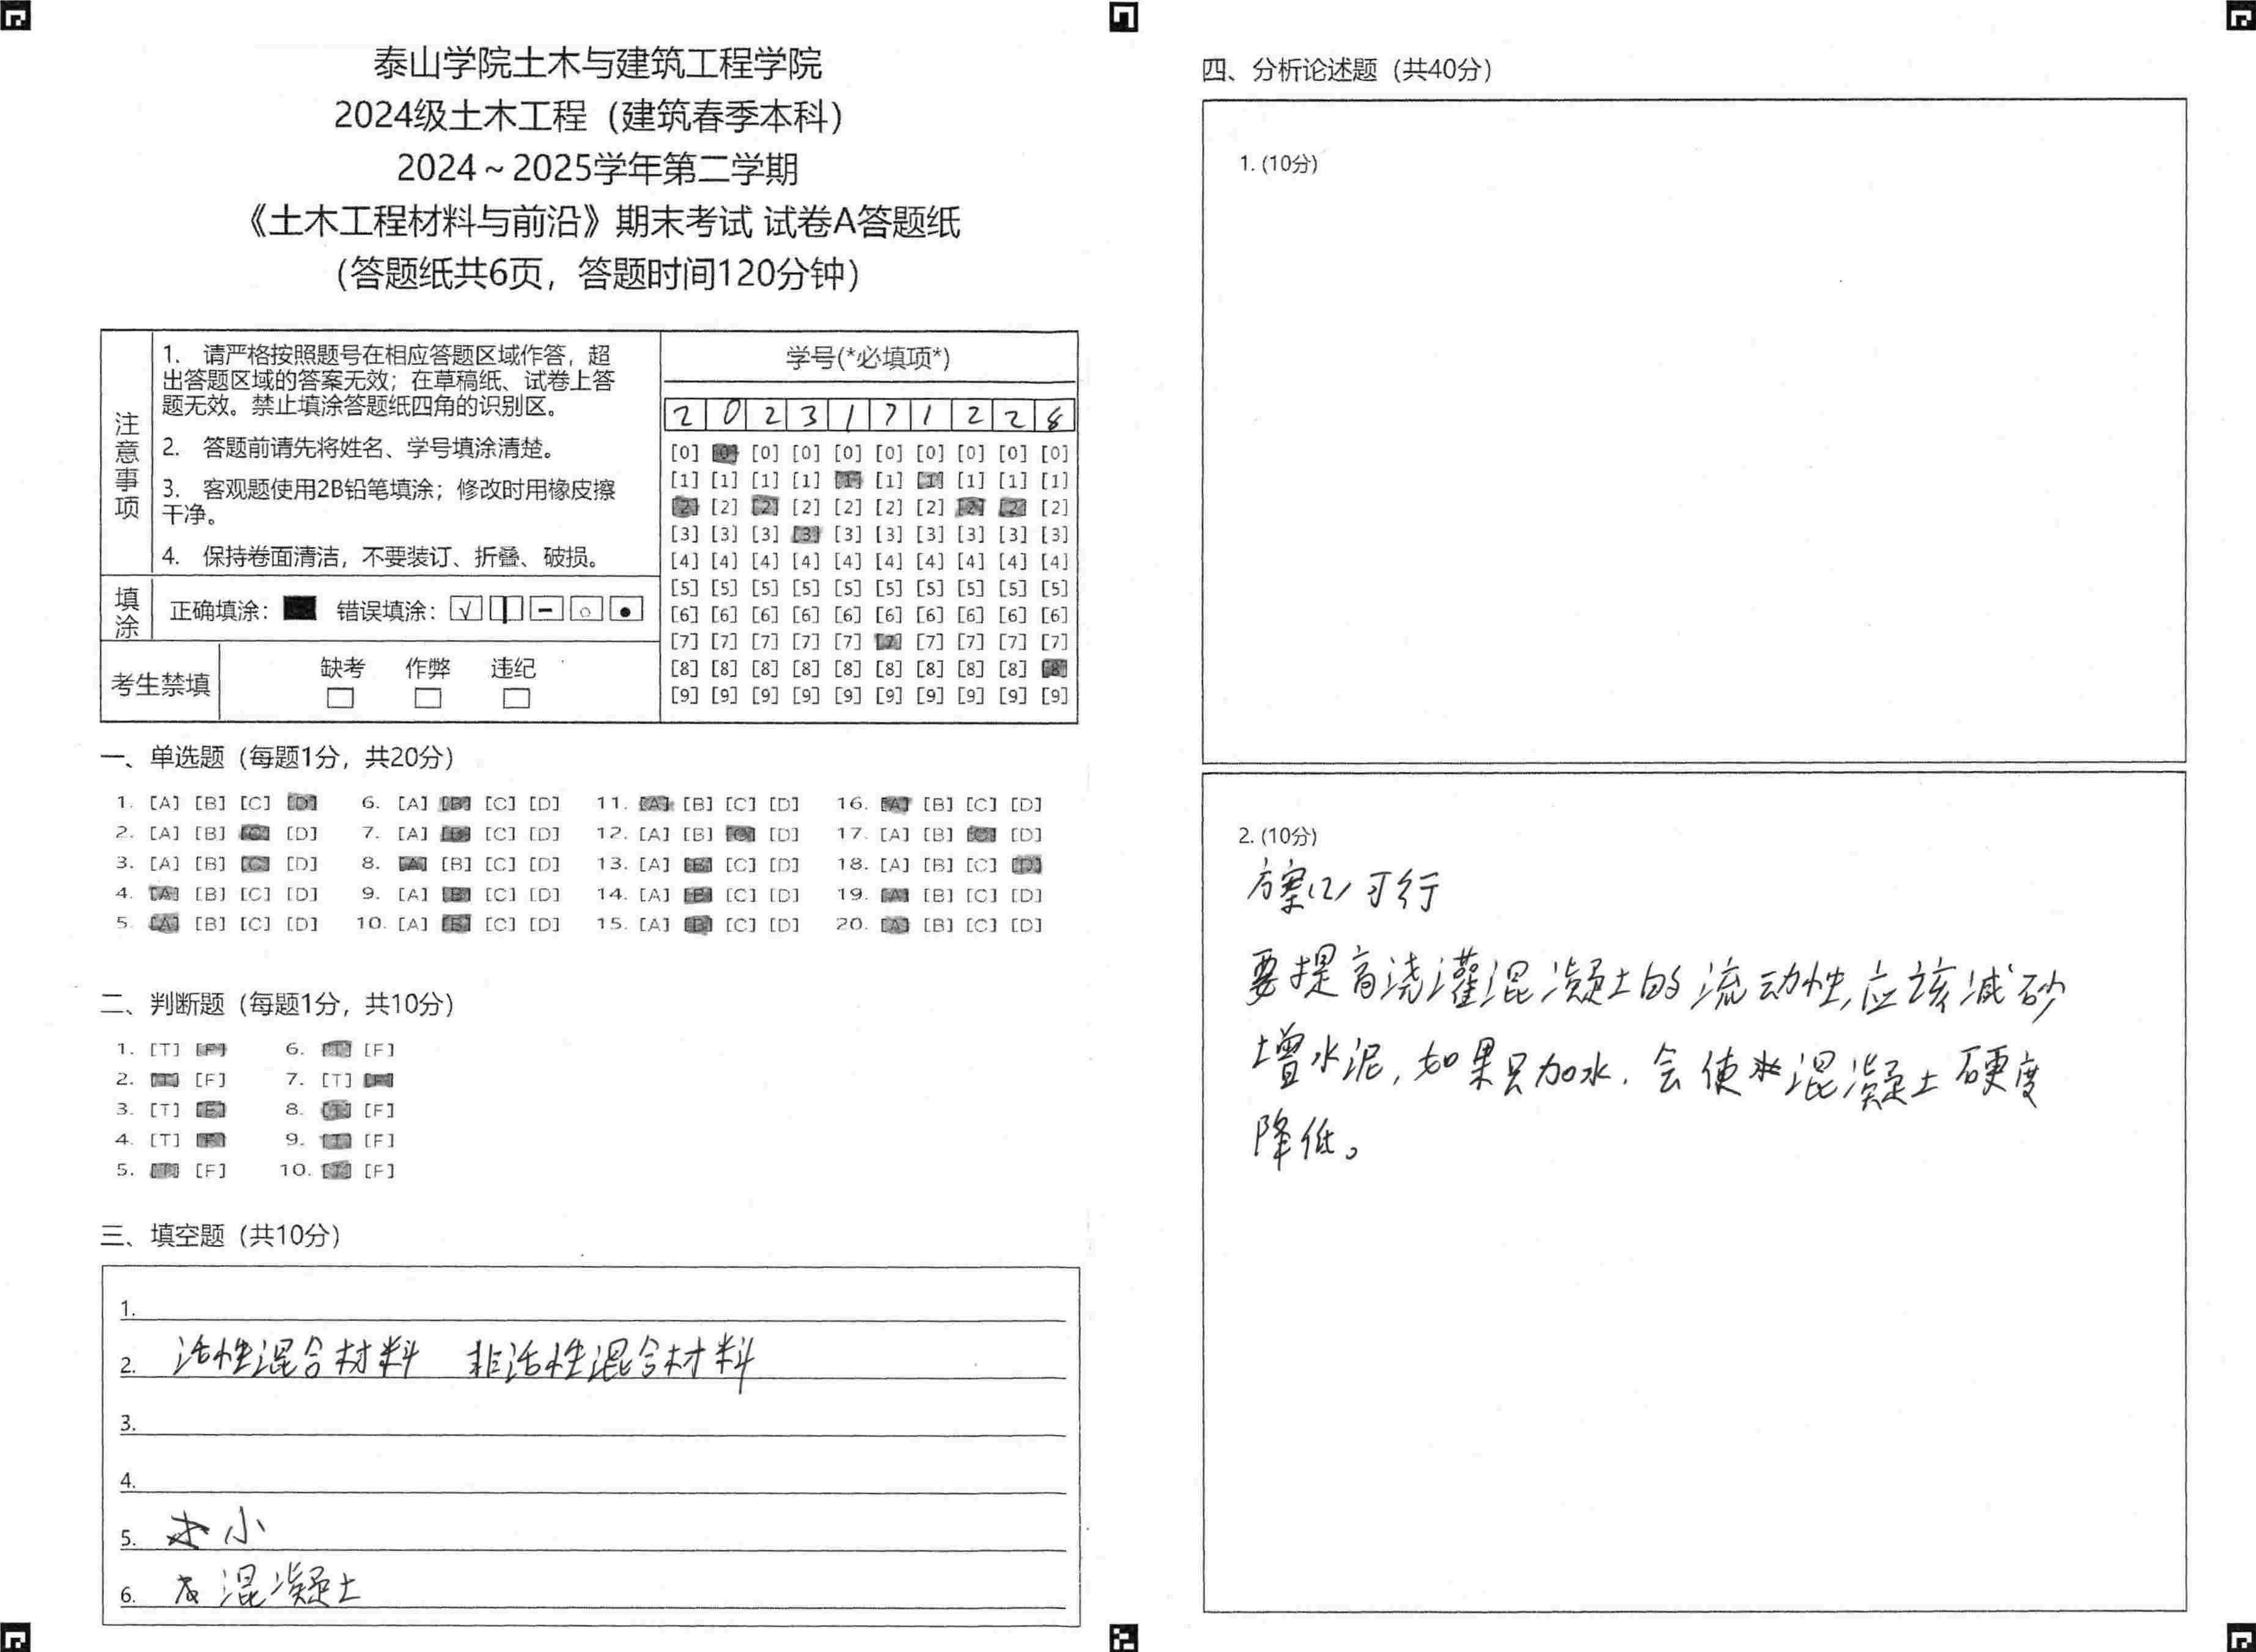 泰山学院土木与建筑工程学院
2024级土木工程（建筑春季本科）
2024～2025学年第二学期
《土木工程材料与前沿》期末考试 试卷A答题纸
（答题纸共6页，答题时间120分钟）
注意事项
1. 请严格按照题号在相应答题区域作答，超
出答题区域的答案无效；在草稿纸、试卷上答
题无效。禁止填涂答题纸四角的识别区。
2. 答题前请先将姓名、学号填涂清楚。
3. 客观题使用2B铅笔填涂；修改时用橡皮擦
干净。
4. 保持卷面清洁，不要装订、折叠、破损。
填涂 正确填涂： 错误填涂：
考生禁填 缺考 作弊 违纪
学号(*必填项*)
2 0 2 3 1 7 1 2 2 8
[0] [0] [0] [0] [0] [0] [0] [0] [0] [0]
[1] [1] [1] [1] [1] [1] [1] [1] [1] [1]
[2] [2] [2] [2] [2] [2] [2] [2] [2] [2]
[3] [3] [3] [3] [3] [3] [3] [3] [3] [3]
[4] [4] [4] [4] [4] [4] [4] [4] [4] [4]
[5] [5] [5] [5] [5] [5] [5] [5] [5] [5]
[6] [6] [6] [6] [6] [6] [6] [6] [6] [6]
[7] [7] [7] [7] [7] [7] [7] [7] [7] [7]
[8] [8] [8] [8] [8] [8] [8] [8] [8] [8]
[9] [9] [9] [9] [9] [9] [9] [9] [9] [9]
一、单选题（每题1分，共20分）
1. [A] [B] [C] [D] 6. [A] [B] [C] [D] 11. [A] [B] [C] [D] 16. [A] [B] [C] [D]
2. [A] [B] [C] [D] 7. [A] [B] [C] [D] 12. [A] [B] [C] [D] 17. [A] [B] [C] [D]
3. [A] [B] [C] [D] 8. [A] [B] [C] [D] 13. [A] [B] [C] [D] 18. [A] [B] [C] [D]
4. [A] [B] [C] [D] 9. [A] [B] [C] [D] 14. [A] [B] [C] [D] 19. [A] [B] [C] [D]
5. [A] [B] [C] [D] 10. [A] [B] [C] [D] 15. [A] [B] [C] [D] 20. [A] [B] [C] [D]
二、判断题（每题1分，共10分）
1. [T] [F] 6. [T] [F]
2. [T] [F] 7. [T] [F]
3. [T] [F] 8. [T] [F]
4. [T] [F] 9. [T] [F]
5. [T] [F] 10. [T] [F]
三、填空题（共10分）
1.
2. 活性混合材料 非活性混合材料
3.
4.
5. 小
6. 混凝土
四、分析论述题（共40分）
1. (10分)
2. (10分)
方案(2)可行
要提高浇灌混凝土的流动性,应该减砂
增水泥,如果只加水.会使混凝土硬度
降低。